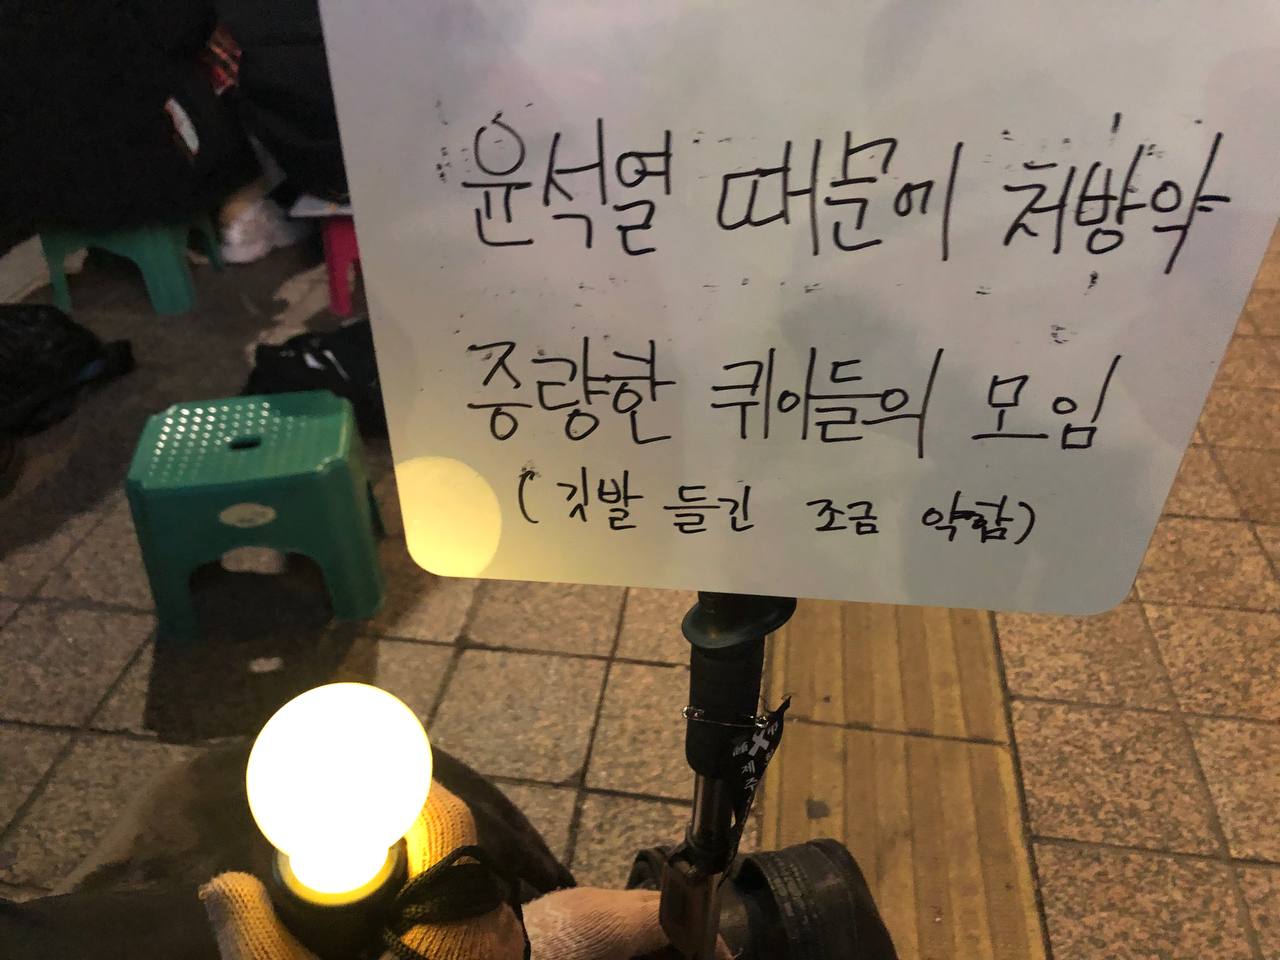 윤석열 때문에 처방약
증량한 퀴어들의 모임
(깃발 들긴 조금 약함)
제
주